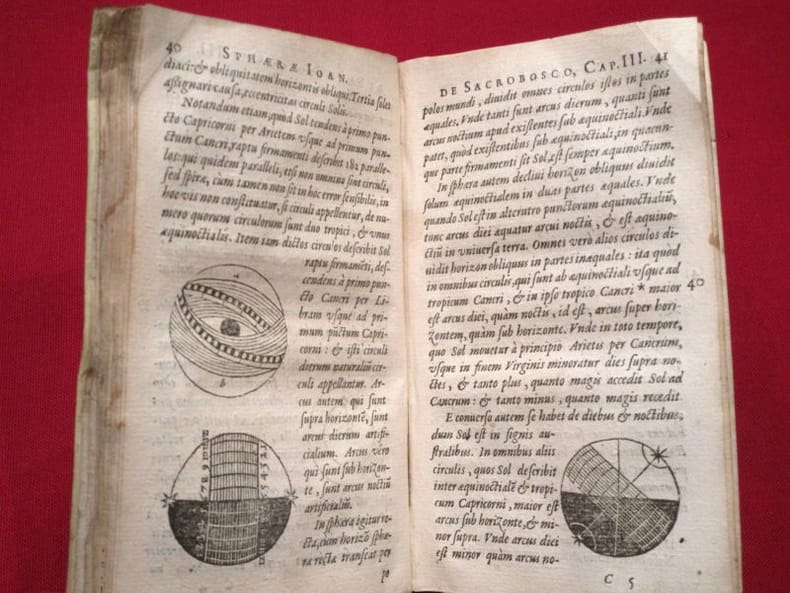 40 SPHÆRÆ IOAN.
diaci: & obliquitatem horizontis obliqui. Tertia solet
aßignari causa, eccentricitas circuli Solis.
Notandum etiam, quòd Sol tendens à primo pun-
cto Capricorni per Arietem vsque ad primum pun-
ctum Cancri, raptu firmamenti describit 182 paralle-
los: qui quidem paralleli, etsi non omnino sint circuli,
sed spiræ, cum tamen non sit in hoc error sensibilis, in
hoc vis non constituatur, si circuli appellentur, de nu-
mero quorum circulorum sunt duo tropici, & vnus
æquinoctialis. Item iam dictos circulos describit Sol
raptu firmamẽti, des-
cendens à primo pun-
cto Cancri per Li-
bram vsque ad pri-
mum pũctum Capri-
corni: & isti circuli
dierum naturaliũ cir-
culi appellantur. Ar-
cus autem qui sunt
supra horizontẽ, sunt
arcus dierum artifi-
cialium. Arcus vero
qui sunt sub horizon-
te, sunt arcus noctiũ
artificialiũ.
In sphæra igitur re-
cta, cùm horizõ sphæ-
ræ rectæ transeat per
po
a
b
DE SACROBOSCO, CAP. III. 41
polos mundi, diuidit omnes circulos istos in partes
æquales. Vnde tanti sunt arcus dierum, quanti sunt
arcus noctium apud existentes sub æquinoctiali. Vnde
patet, quòd existentibus sub æquinoctiali, in quacun-
que parte firmamenti sit Sol, est semper æquinoctium.
In sphæra autem decliui horizon obliquus diuidit
solum æquinoctialem in duas partes æquales. Vnde
quando Sol est in alterutro punctorum æquinoctialiũ,
tunc arcus diei æquatur arcui noctis, & est æquino-
ctium in vniuersa terra. Omnes verò alios circulos di-
uidit horizon obliquus in partes inæquales: ita quòd
in omnibus circulis, qui sunt ab æquinoctiali vsque ad
tropicum Cancri, & in ipso tropico Cancri * maior
40
est arcus diei, quàm noctis, id est, arcus super hori-
zontem, quàm sub horizonte. Vnde in toto tempore,
quo Sol mouetur à principio Arietis per Cancrum,
vsque in finem Virginis minoratur dies supra no-
ctes, & tanto plus, quanto magis accedit Sol ad
Cancrum: & tanto minus, quanto magis recedit.
E conuerso autem se habet de diebus & noctibus,
dum Sol est in signis au-
stralibus. In omnibus aliis
circulis, quos Sol describit
inter æquinoctialẽ & tropi-
cum Capricorni, maior est
arcus sub horizonte, & mi-
nor supra. Vnde arcus diei
est minor quàm arcus no-
C 5